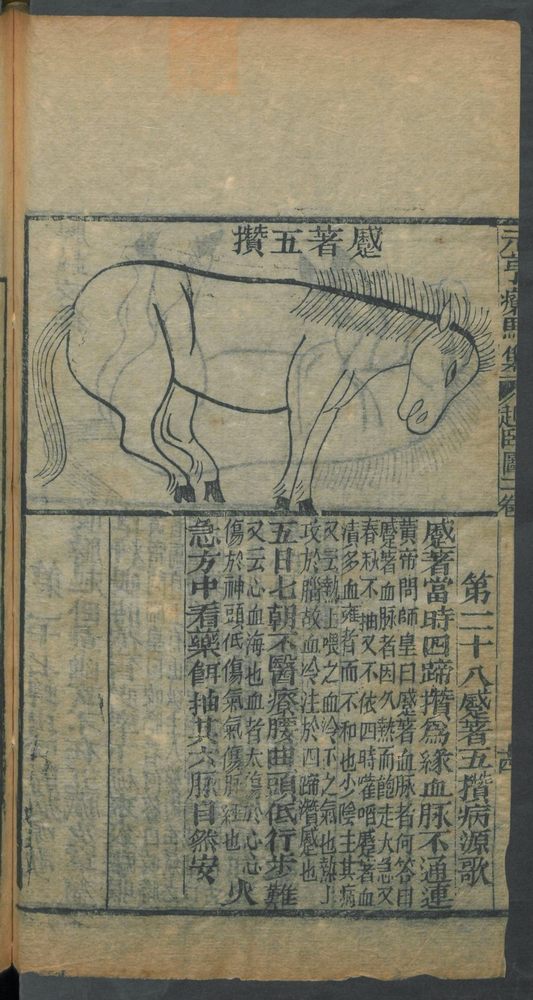 元亨療馬集 起臥圖一卷
蹙著五攢
第二十八蹙著五攢病源歌
蹙著當時四蹄攢爲緣血脉不通連
黃帝問師皇曰蹙著血脉者何答曰
蹙著血脉者因久熱而飽走大急又
春秋不抽又不依四時嚾啗蹙著血
清多血雍者而不和也少陰主其病
又云熱上喂之血冷下之氣也熱上
攻於腦故血冷注於四蹄攢蹙也
五日七朝不醫療腰曲頭低行步難
又云心血海也血者太傷於心心火
傷於神頭低傷氣氣傷脉經也
急方中看藥餌抽其六脉自然安